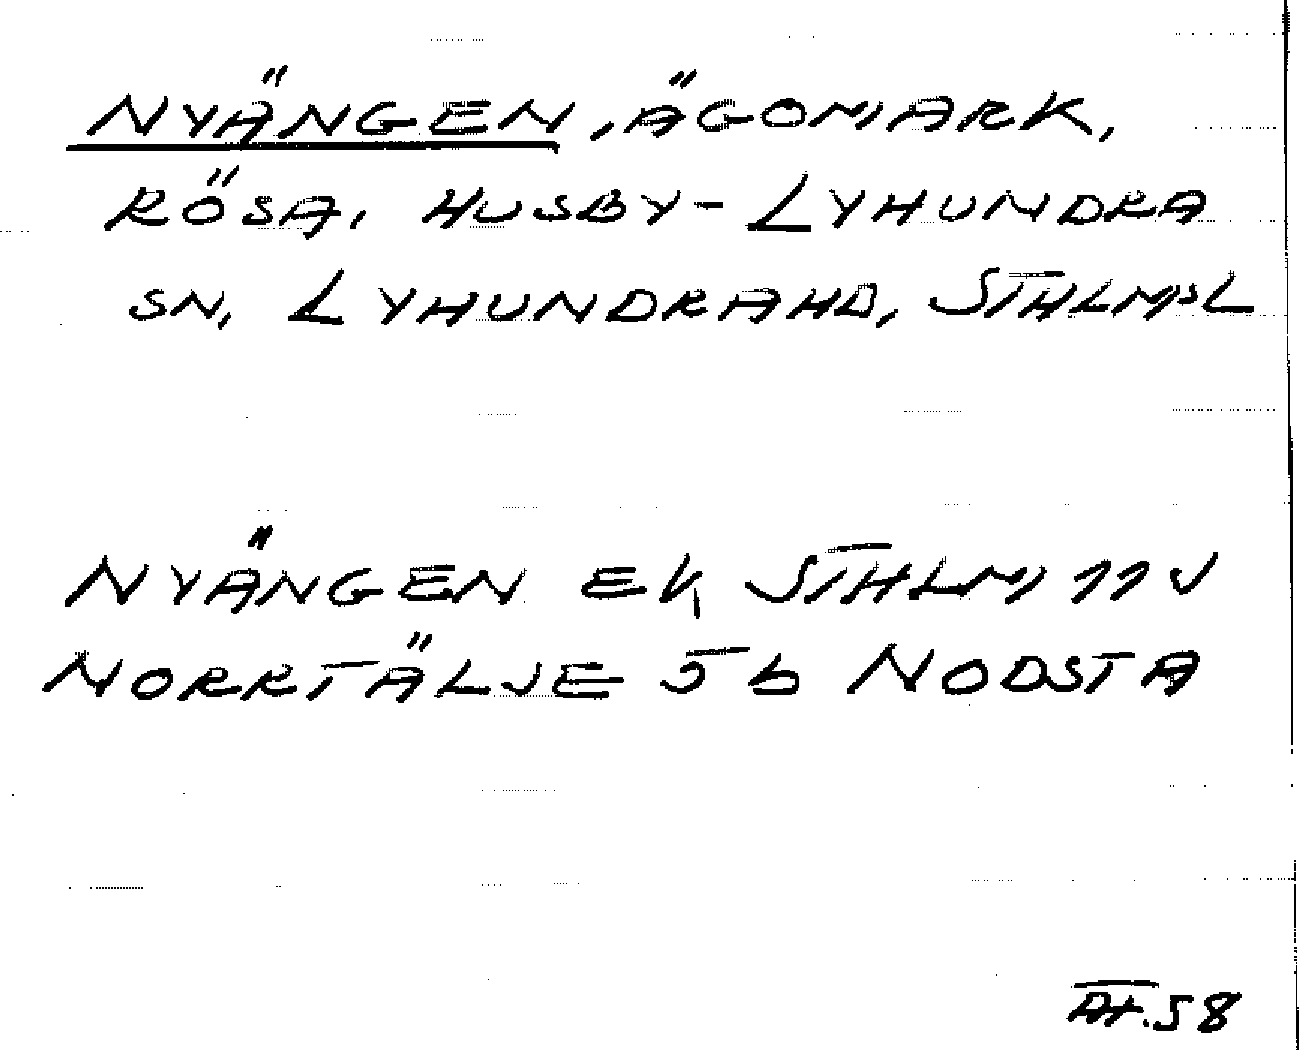 NYÄNGEN, ÄGOMARK,
RÖSA, HUSBY-LYHUNDRA
SN, LYHUNDRAHD, STHLMSL
NYÄNGEN EK STHLM 11V
NORRTÄLJE 5b NODSTA